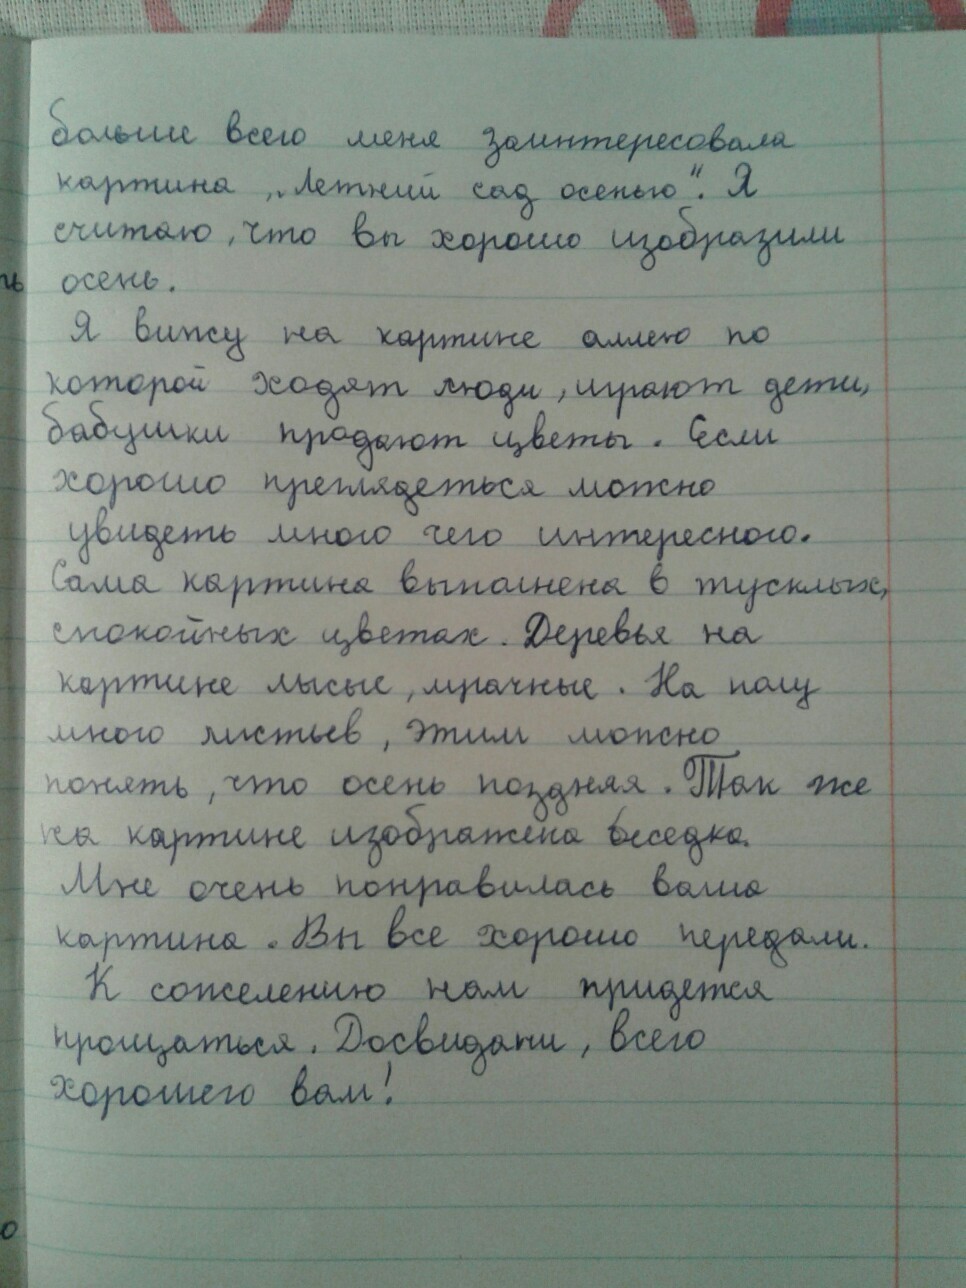 больше всего меня заинтересовала
картина „Летний сад осенью". Я
считаю, что вы хорошо изобразили
осень.
Я вижу на картине аллею по
которой ходят люди, играют дети,
бабушки продают цветы. Если
хорошо преглядеться можно
увидеть много чего интересного.
Сама картина выполнена в тусклых,
спокойных цветах. Деревья на
картине лысые, мрачные. На полу
много листьев, этим можно
понять, что осень поздняя. Так же
на картине изображена беседка.
Мне очень понравилась ваша
картина. Вы все хорошо передали.
К сожелению нам придется
прощаться. Досвидани, всего
хорошего вам!